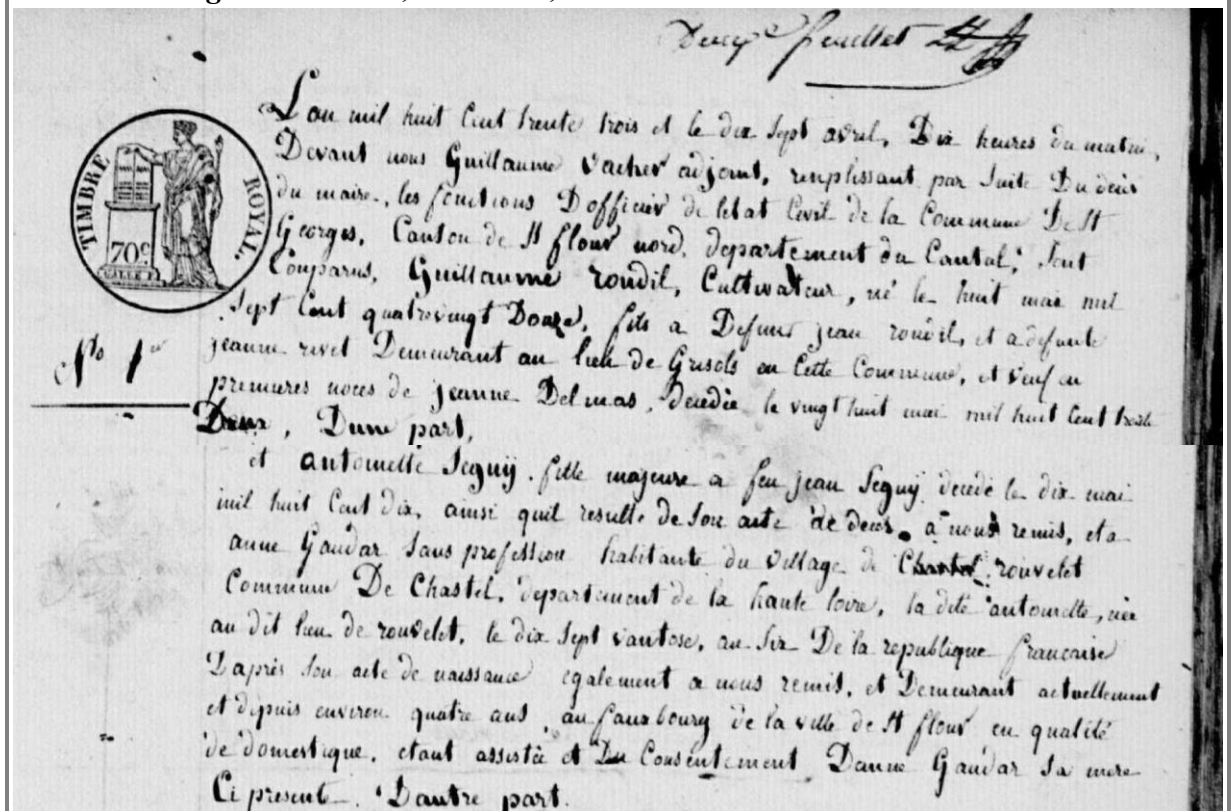 Deuxe feuillet
TIMBRE ROYAL.
70c
Lan mil huit Cent trente trois et le dix sept avril, Dix heures du matin,
Devant nous Guillaume Vacher adjoint, remplissant par suite Du deces
du maire, les fonctions D officier de letat Civil de la Commune De St
Georges, Canton de St flour nord, departement du Cantal, Sont
Comparus, Guillaume roudil, Cultivateur, né le huit mai mil
Sept Cent quatrevingt Douze, fils a Defunt jean roudil, et a defunte
No 1er
jeanne rivet Demeurant au lieu de Grisols en Cette Commune, et veuf en
premieres noces de jeanne Delmas, decedée le vingt huit mai mil huit Cent trente
Deux, Dune part,
et antoinette Seguy, fille majeure a feu jean Seguy decedé le dix mai
mil huit Cent dix, ainsi quil resulte de Son acte de deces, a nous remis, et a
anne Gaudar Sans profession habitante du village de rouvelet
Commune De Chastel, departement de la haute loire, la dite antoinette, née
au dit lieu de rouvelet, le dix Sept vantose, an Six De la republique francaise
Dapres Son acte de naissance egalement a nous remis, et Demeurant actuellement
et depuis environ quatre ans, au fauxbourg de la ville de St flour en qualité
de domestique, etant assistée et Du Consentement Danne Gaudar Sa mere
Ci present. Dautre part.